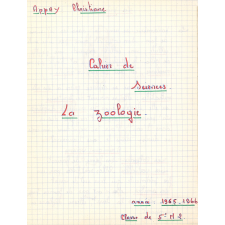 Appay Christiane
Cahier de
Sciences.
La zoologie.
année 1965.1966
Classe de 5e M 2.